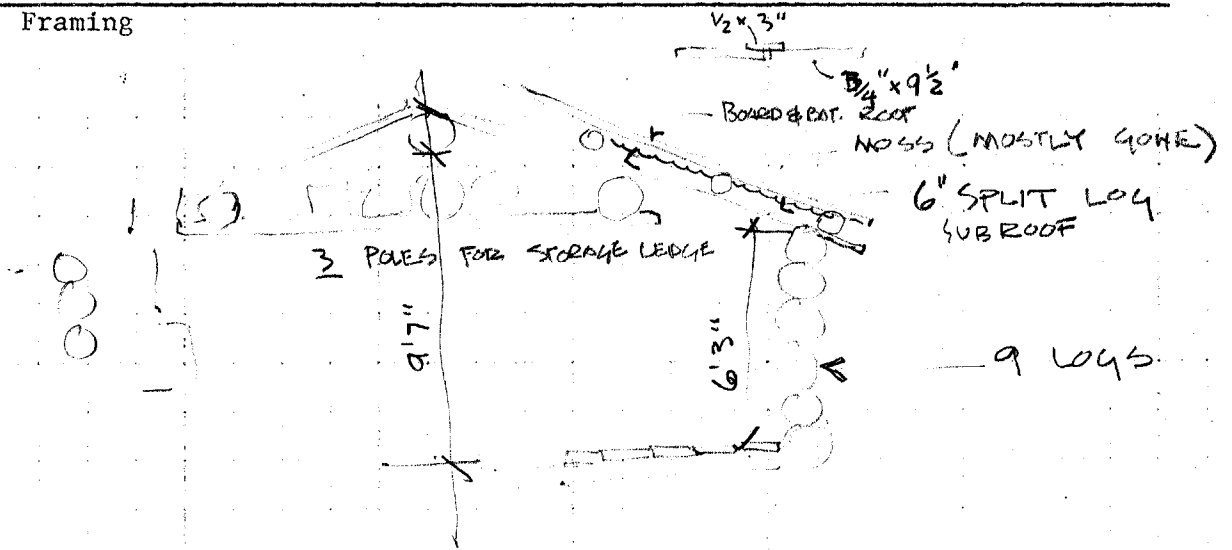 Framing
1/2 x 3"
3/4" x 9 1/2"
BOARD & BAT. ROOF
MOSS (MOSTLY GONE)
6" SPLIT LOG
SUBROOF
3 POLES FOR STORAGE LEDGE
9'7"
6'3"
9 LOGS